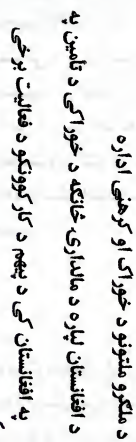 د ملګرو ملتونو د خوراک او کرهنی اداره
د افغانستان لپاره د مالداری څانګه د خوراکی د تأمین په
په افغانستان کی د پیهم د کار کوونکو د فعالیت برخی